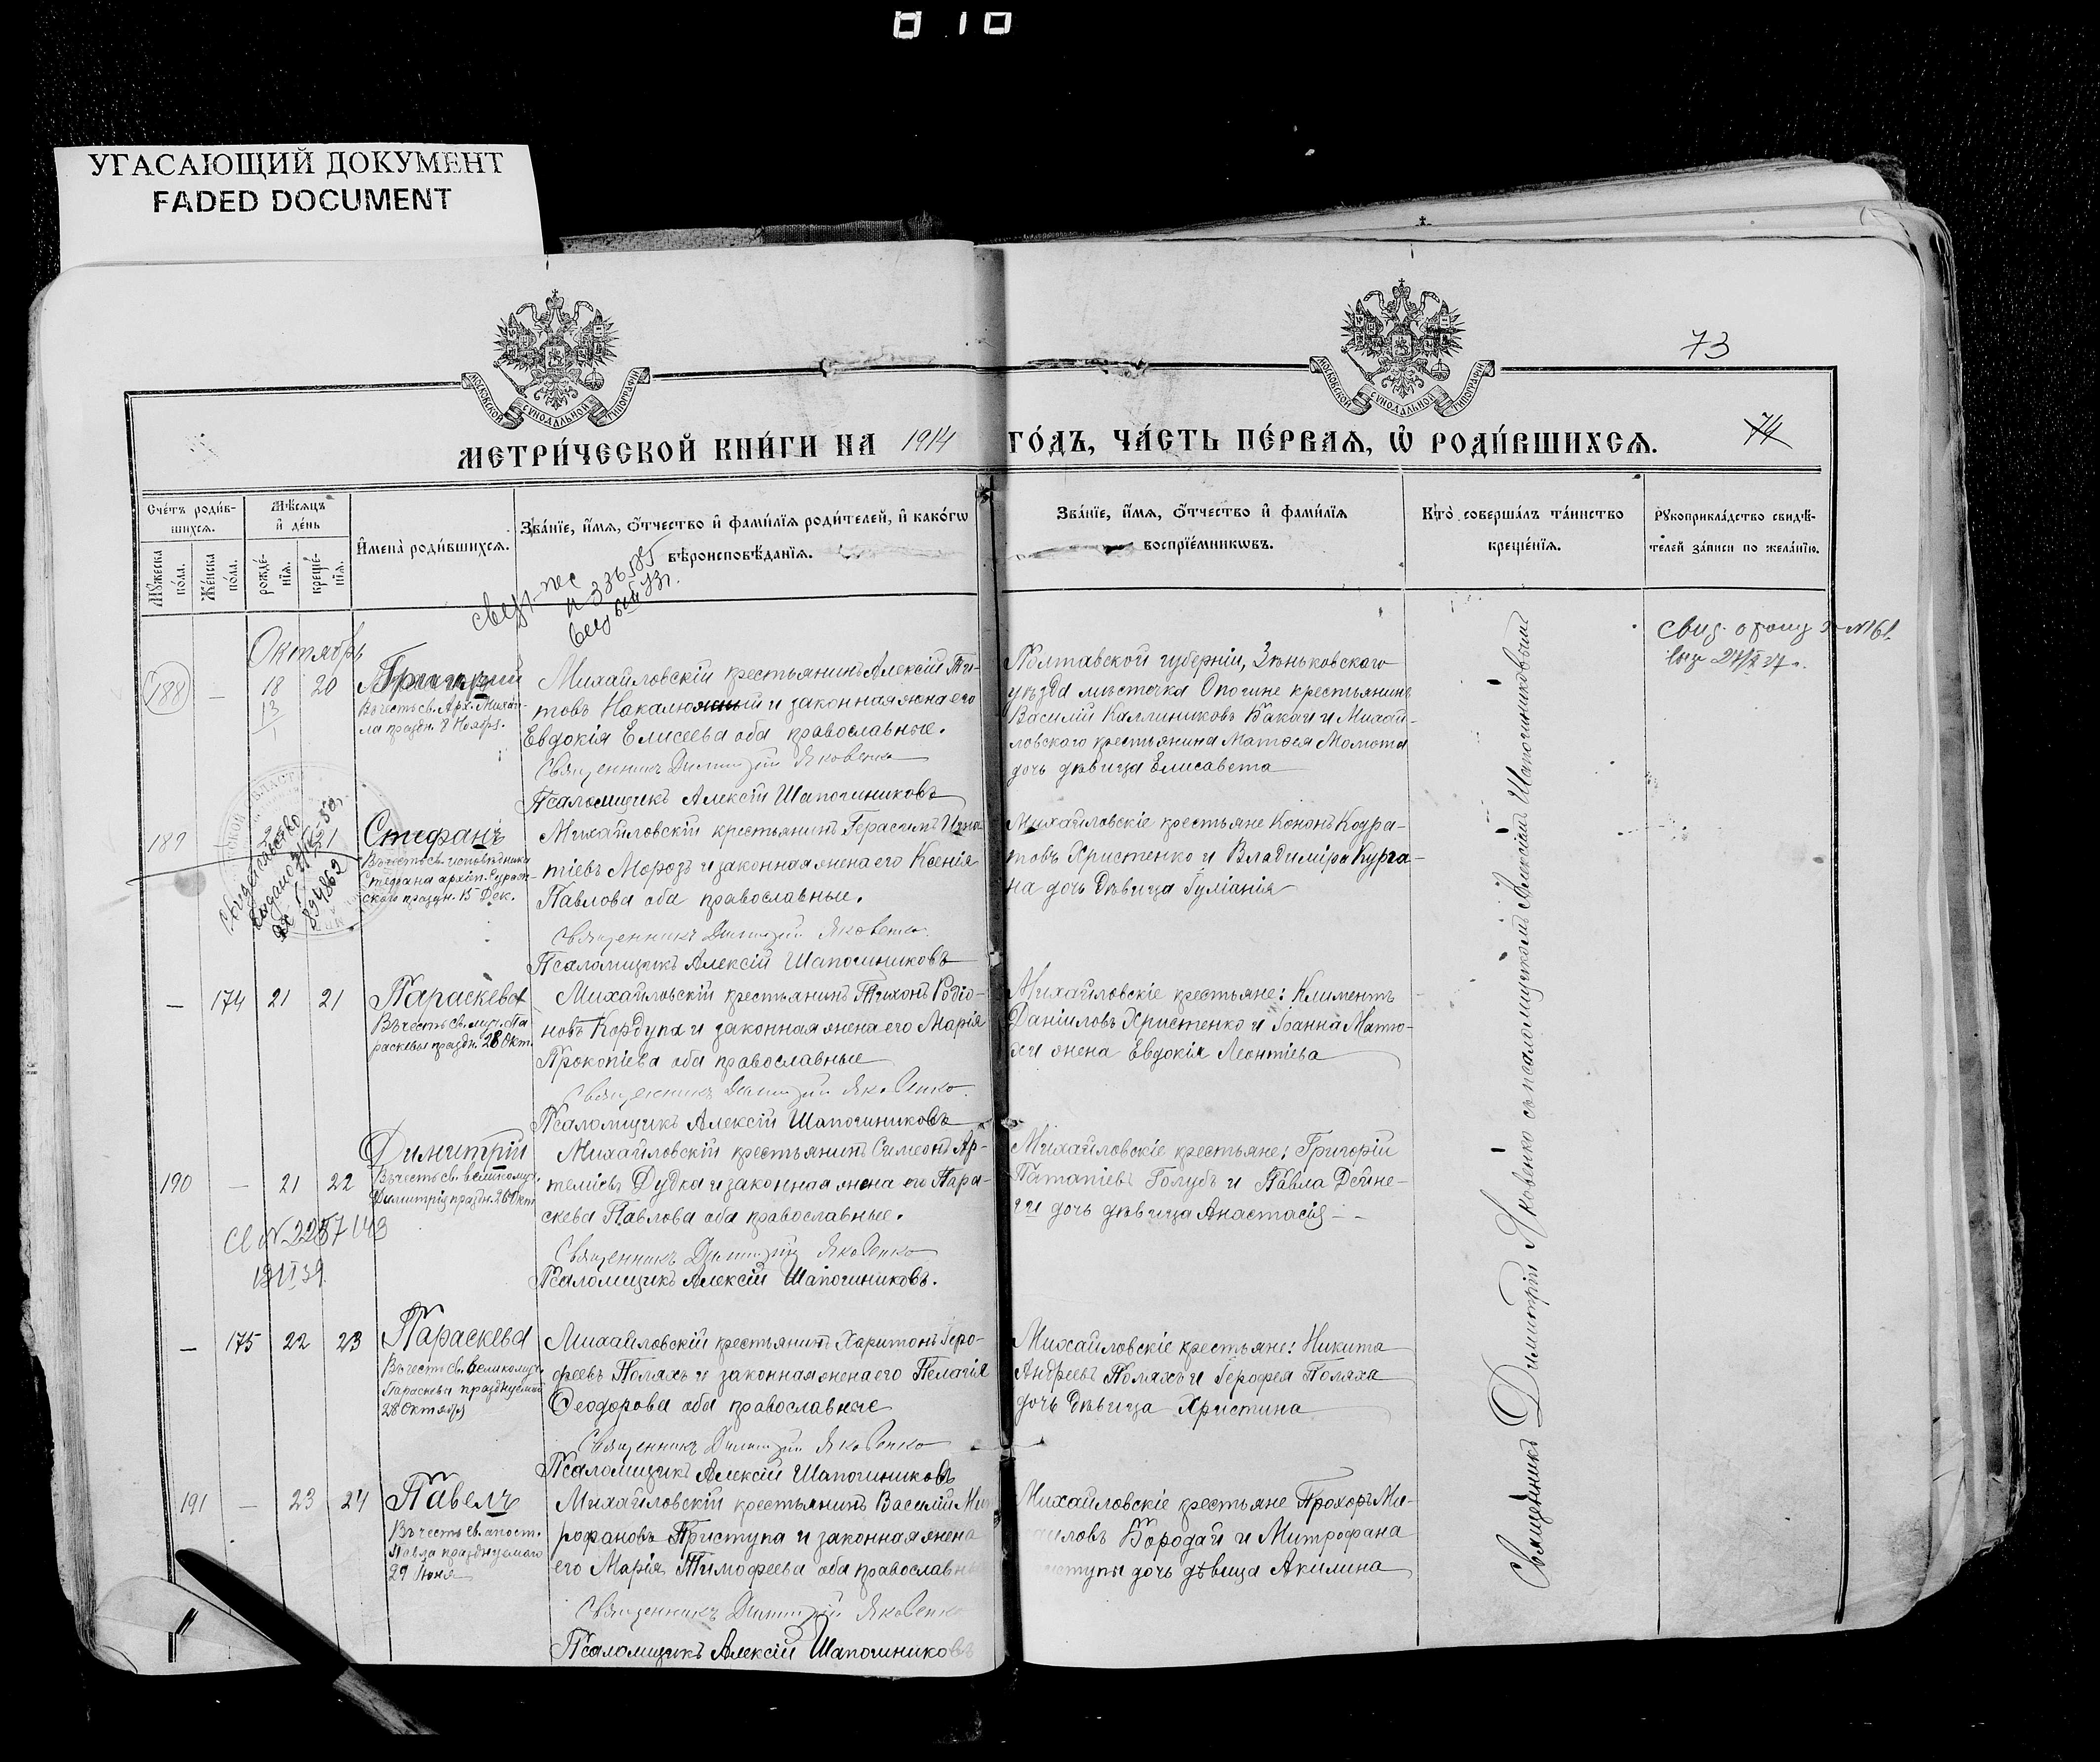 010
УГАСАЮЩИЙ ДОКУМЕНТ
FADED DOCUMENT
МОСКОВСКОЙ СѴНОДАЛЬНОЙ ТИПОГРАФІИ
МОСКОВСКОЙ СѴНОДАЛЬНОЙ ТИПОГРАФІИ
73
74
МЕТРИ́ЧЕСКОЙ КНИ́ГИ НА 1914 ГО́ДЪ, ЧА́СТЬ ПЕ́РВАѦ, Ѡ҆ РОДИ́ВШИХСѦ.
Сче́тъ роди́в-
шихсѧ.
Мѣ́сѧцъ
и҆ де́нь
Мꙋ́жеска
по́ла.
Же́нска
по́ла.
рожде́-
нїѧ.
креще́-
нїѧ.
И҆мена̀ роди́вшихсѧ.
Зва́нїе, и҆́мѧ, ѻ҆́тчество и҆ фами́лїѧ роди́телей, и҆ како́гѡ
вѣроисповѣ́данїѧ.
Зва́нїе, и҆́мѧ, ѻ҆́тчество и҆ фами́лїѧ
воспрїе́мникѡвъ.
Кто̀ соверша́лъ та́инство
креще́нїѧ.
Рꙋкоприкла́дство свидѣ́-
телей за́писи по жела́нїю.
Октябрь
188 — 18 20
13
Въ честь св. Арх. Михаи-
ла праздн. 8 Ноябр.
Михайловскій крестьянинъ Алексій Ти-
товъ и законная жена его
Евдокія Елисеева оба православные.
Священникъ Димитрій Яковенко
Псаломщикъ Алексій Шапочниковъ
Полтавской губерніи, Зѣньковскаго
уѣзда мѣстечка Опошне крестьянинъ
Василій Каллиниковъ Бакай и Михай-
ловскаго крестьянина Матѳея Момота
дочь дѣвица Елисавета
189 21
Стефанъ
Въ честь св. исповѣдника
Стефана архіеп. Сурож-
скаго праздн. 15 Дек.
Свидетельство
выдано
894862
Михайловскій крестьянинъ Герасимъ Игна
тіевъ Морозъ и законная жена его Ксенія
Павлова оба православные.
Священникъ Димитрій Яковенко
Псаломщикъ Алексій Шапочниковъ
Михайловскіе крестьяне Кононъ Кодра-
товъ Христенко и Владиміра Курга-
на дочь дѣвица Іуліанія
— 174 21 21
Параскева
Въ честь св. муч. Па
раскевы праздн. 28 Окт.
Михайловскій крестьянинъ Тихонъ Родіо-
новъ Кордупа и законная жена его Марія
Прокопіева оба православные
Священникъ Димитрій Яковенко
Псаломщикъ Алексій Шапочниковъ
Михайловскіе крестьяне: Климентъ
Даніиловъ Христенко и Іоанна Матю-
хи жена Евдокія Леонтіева
190 — 21 22
Димитрій
Въ честь св. великомуч.
Димитрія праздн. 26 Окт
Михайловскій крестьянинъ Симеонъ Ар-
теміевъ Дудка и законная жена его Пара-
скева Павлова оба православные.
Священникъ Димитрій Яковенко
Псаломщикъ Алексій Шапочниковъ.
Михайловскіе крестьяне: Григорій
Потапіевъ Голубъ и Павла Дейне-
ги дочь дѣвица Анастасія
— 175 22 23
Параскева
Въ честь св. великомуч.
Параскевы празднуемой
28 Октября
Михайловскій крестьянинъ Харитонъ Іеро-
феевъ Поляхъ и законная жена его Пелагія
Ѳеодорова оба православные
Священникъ Димитрій Яковенко
Псаломщикъ Алексій Шапочниковъ
Михайловскіе крестьяне: Никита
Андреевъ Поляхъ и Іерофея Поляха
дочь дѣвица Христина
191 — 23 24
Павелъ
Въ честь св. апост.
Павла празднуемаго
29 Іюня
Михайловскій крестьянинъ Василій Мит
рофановъ Приступа и законная жена
его Марія Тимофеева оба православн
Священникъ Димитрій Яковенко
Псаломщикъ Алексій Шапочниковъ
Михайловскіе крестьяне Прохоръ Ми-
аиловъ Бородай и Митрофана
иступы дочь дѣвица Акилина
Священникъ Димитрій Яковенко съ псаломщикомъ Алексіемъ Шапочниковымъ